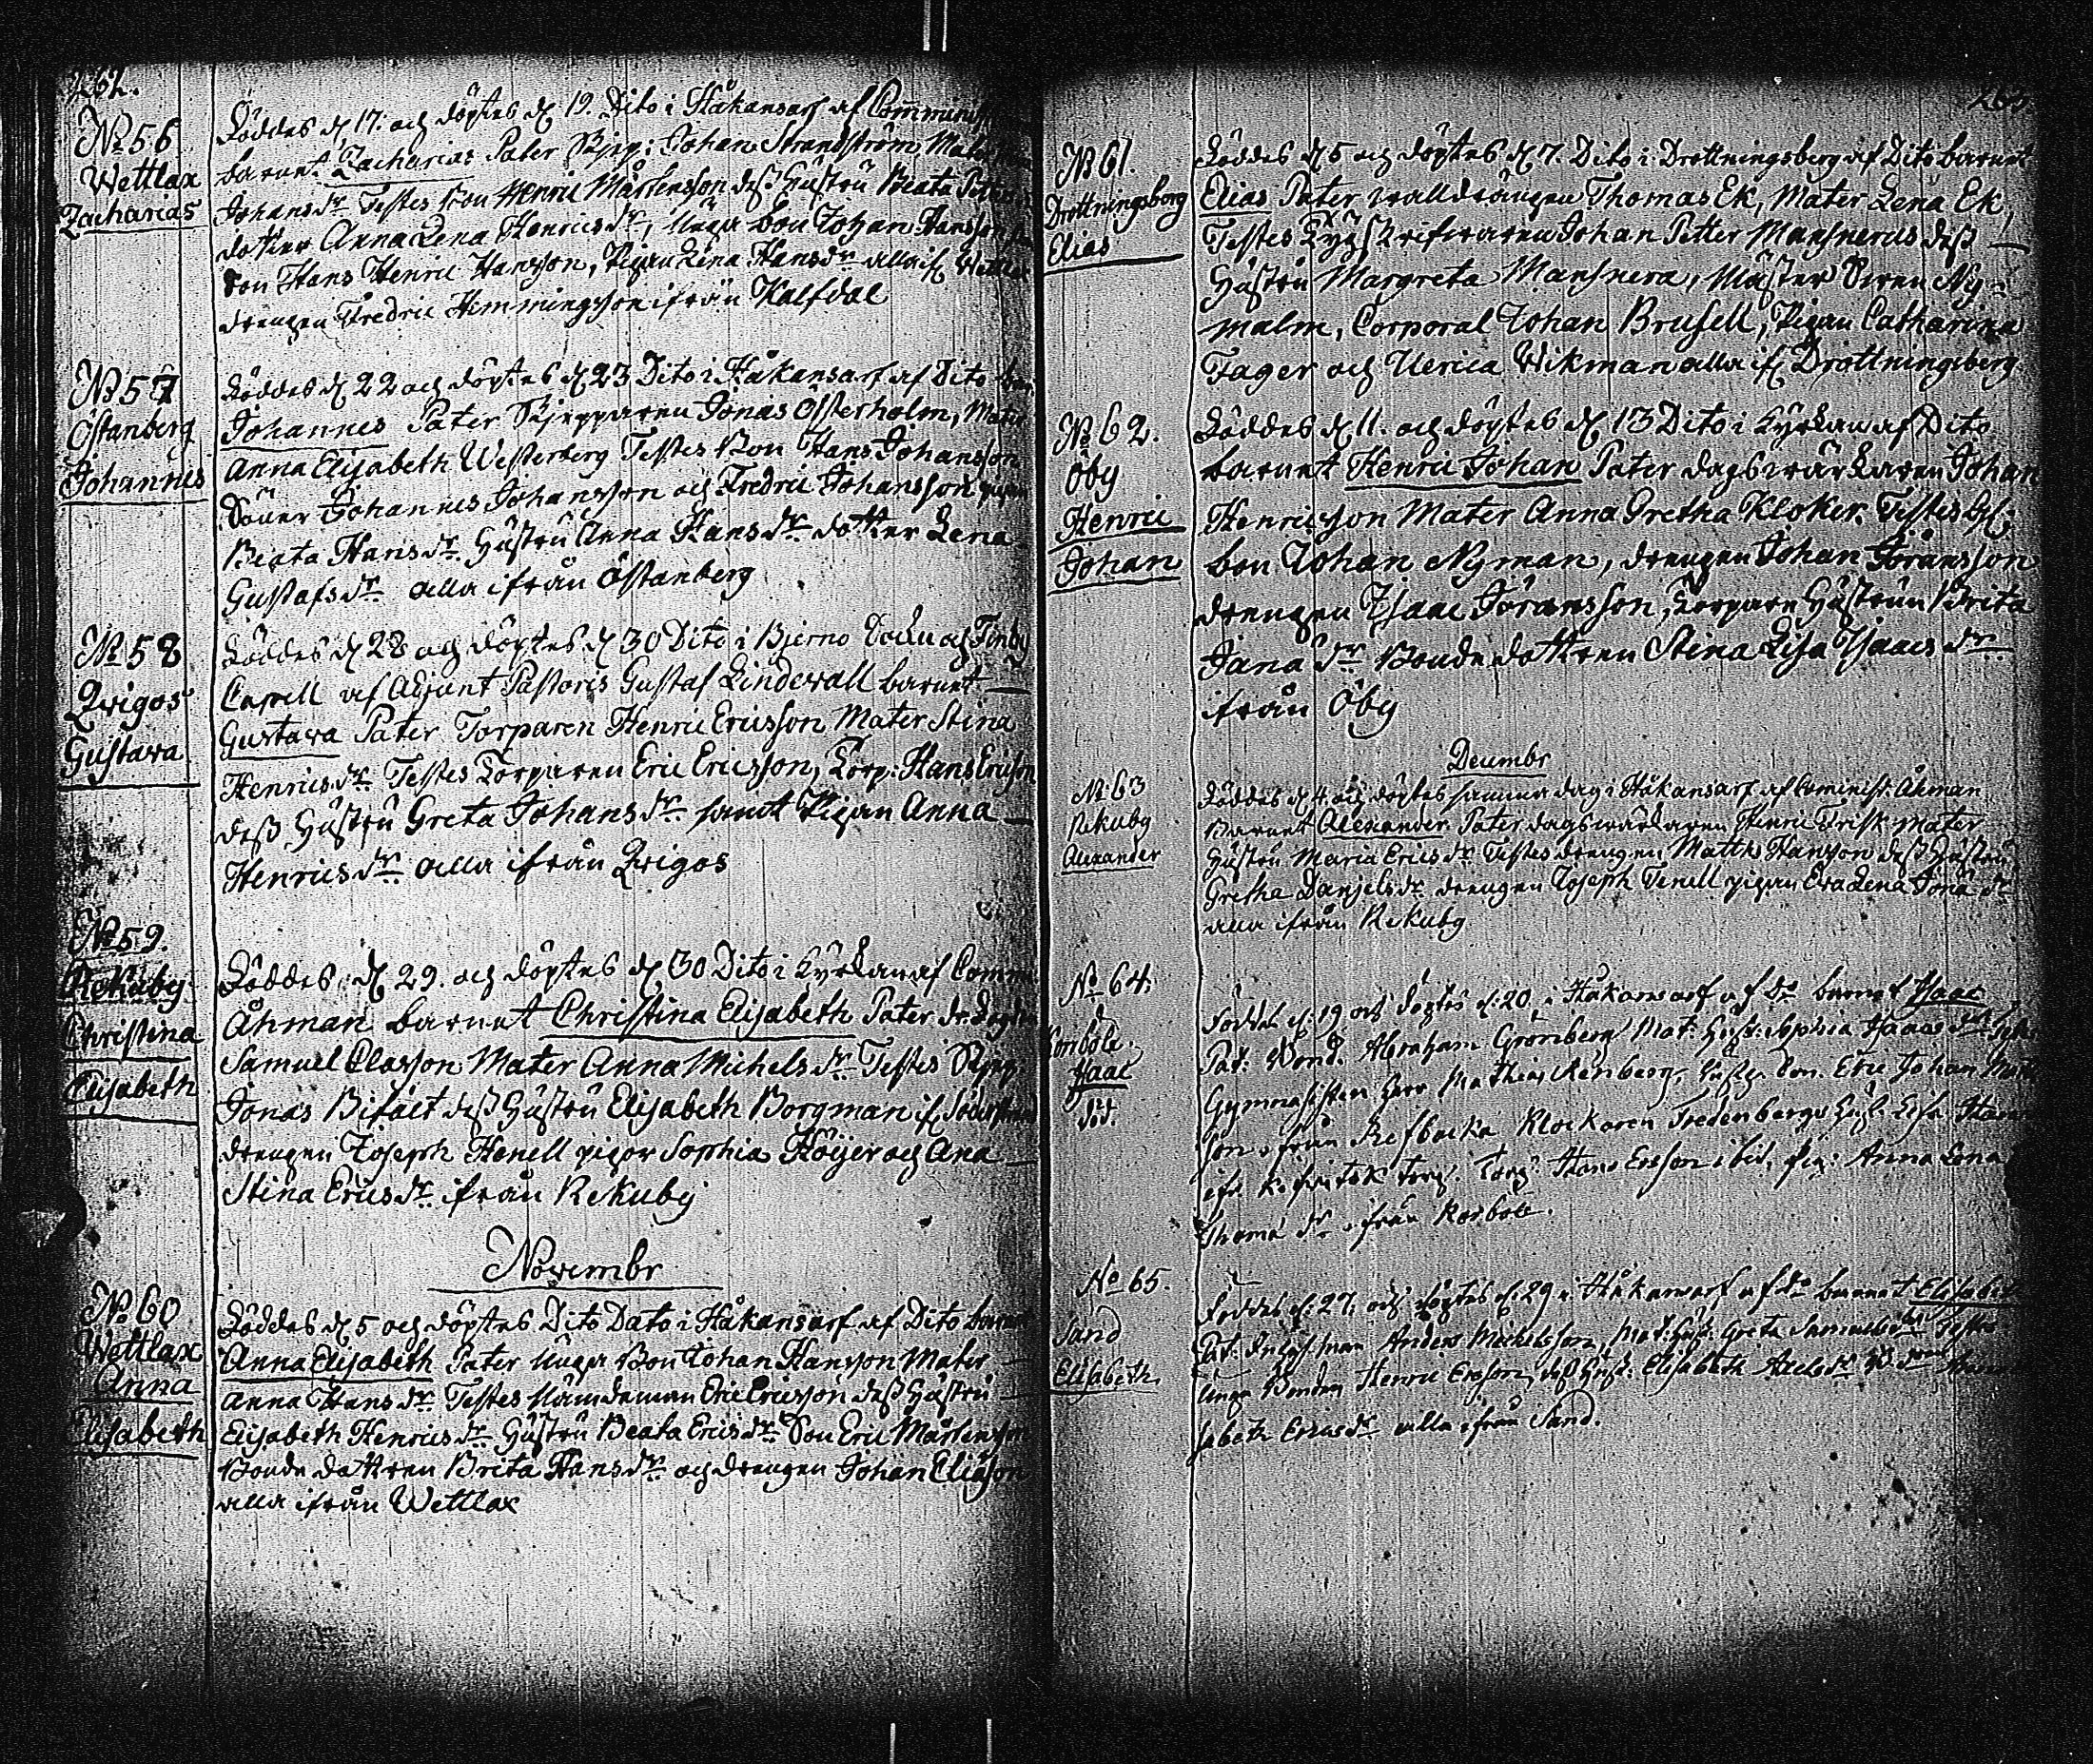 262.
No 56
Wettlax
Zacharias
Föddes d 17. och döptes d 19. Dito i Håkansarf af Comminist
barnet Zacharias Pater Skjep: Johan Strandström, Mater
Johans dr Testes Bon Henric Mårtensson dess Hustru Beata
dotter Anna Lena Henrics dr, Unga bon Johan Hansson,
Son Hans Henric Hansson, Pigan Lena Hans dr alla if Wettlax
drengen Fredric Hemmingsson ifrån Kalfdal
No 57
Östanberg
Johannes
Föddes d 22 och döptes d 23 Dito i Håkansarf af Dito
Johannes Pater Skjepparen Jonas Österholm, Mater
Anna Elisabeth Westerberg Testes Bon Hans Johansson
Söner Johannes Johansson och Fredric Johansson
Beata Hans dr Hustru Anna Hans dr dotter Lena
Gustafs dr alla ifrån Östanberg
No 58
Qvigos
Gustava
Föddes d 28 och döptes d 30 Dito i Bjerno Sockn och Finby
Capell af Adjunct Pastoris Gustaf Lindewall barnet
Gustava Pater Torparen Henric Ericsson Mater Stina
Henrics dr Testes Torparen Eric Ericsson, Torp: Hans Ericsson
dess Hustru Greta Johans dr samt Pigan Anna
Henrics dr alla ifrån Qvigos
No 59.
Rekuby
Christina
Elisabeth
Föddes d 29. och döptes d 30 Dito i Kyrkan af Comm
Åhman barnet Christina Elisabeth Pater
Samuel Classon Mater Anna Michels dr Testes Skjep:
Jonas Bifalt dess Hustru Elisabeth Borgman if
drengen Joseph Henell pigor Sophia Höijer och Ana
Stina Erics dr ifrån Rekuby
Novembr
No 60
Wettlax
Anna
Elisabeth
Föddes d 5 och döptes Dito Dato i Håkansarf af Dito barnet
Anna Elisabeth Pater Unga Bon Johan Hansson Mater
Anna Hans dr Testes Nämdeman Eric Ericsson dess Hustru
Elisabeth Henrics dr Hustru Beata Erics dr Son Eric Mårtensson
Bonde dottren Brita Hans dr och drengen Johan Eliasson
alla ifrån Wettlax
No 61.
Drottningsberg
Elias
Föddes d 5 och döptes d 7. Dito i Drottningsberg af Dito barnet
Elias Pater walldrängen Thomas Ek, Mater Lena Ek,
Testes Johan Petter Mansnerus dess
Hustru Margreta Mansnera, Mäster Sven Ny-
malm, Corporal Johan Brusell, Pigan Catharina
Fager och Ulrica Wikman alla if Drottningsberg
No 62.
Öby
Henric
Johan
Föddes d 11. och döptes d 13 Dito i Kyrkan af Dito
barnet Henric Johan Pater dagswärkaren Johan
Henricsson Mater Anna Gretha Kloker. Testes
bon Johan Nyman, drengen Johan Göransson
drengen Isaac Göransson, Torpare Hustrun Brita
Jana dr Bonde dottren Stina Lisa Isaacs dr
ifrån Öby
Decembr
No 63
Rekuby
Alexander
Föddes d 4 och döptes samma dag i Håkansarf af Cominist: Åhman
Barnet Alexander Pater dagswärkaren Henric Frisk Mater
Hustru Maria Erics dr Testes drengen Matths Hansson dess Hustru
Gretha Danjels dr drengen Joseph Tenell pigan Eva Lena Jona dr
alla ifrån Rekuby
No 64.
Korsböle.
Isaac
död.
Föddes d: 19 och döptes d: 20 i Håkansarf af do barnet Isaac
Pat: Bond. Abraham Grönberg Mat: Hust: Sophia Isaacs dr
Gymnasisten Herr Mathias Renberg, Eric Johan
son ifrån Refbacka Klockaren Fredenbergs Hust. Lisa
Torp: Hans Ersson ibid, pig: Anna Lena
Thoma dr ifrån Korsböle.
No 65.
Sand
Elisabeth
Föddes d: 27. och döptes d: 29 i Håkansarf af do barnet Elisabeth
Pat: Anders Michelsson, Mat: Hust: Greta Samuels dr Testes
Unga Bonden Henric Ersson, dess Hust: Elisabeth Axels dr
sabeth Erics dr alla ifrån Sand.